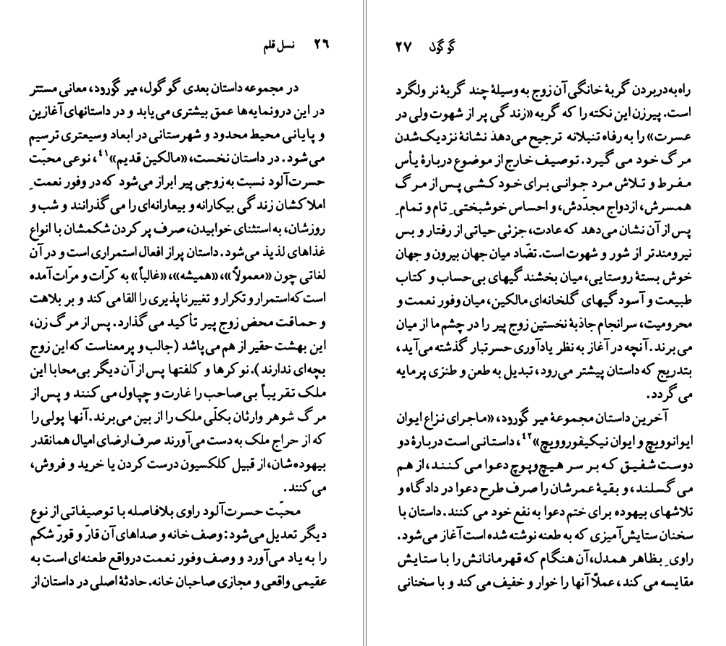 ۲۶ نسل قلم
در مجموعه داستان بعدی گوگول، میر گورود، معانی مستتر
در این درونمایه‌ها عمق بیشتری می‌یابد و در داستانهای آغازین
و پایانی محیط محدود و شهرستانی در ابعاد وسیعتری ترسیم
می‌شود. در داستان نخست، «مالکین قدیم»۴۱، نوعی محبّت
حسرت‌آلود نسبت به زوجی پیر ابراز می‌شود که در وفور نعمتِ
املاکشان زندگی بیکارانه و بیعارانه‌ای را می‌گذرانند و شب و
روزشان، به استثنای خوابیدن، صرف پر کردن شکمشان با انواع
غذاهای لذیذ می‌شود. داستان پر از افعال استمراری است و در آن
لغاتی چون «معمولاً»، «همیشه»، «غالباً» به کرّات و مرّات آمده
است که استمرار و تکرار و تغییرناپذیری را القا می‌کند و بر بلاهت
و حماقت محض زوج پیر تأکید می‌گذارد. پس از مرگ زن،
این بهشت حقیر از هم می‌پاشد (جالب و پرمعناست که این زوج
بچه‌ای ندارند). نوکرها و کلفتها پس از آن دیگر بی‌محابا این
ملک تقریباً بی‌صاحب را غارت و چپاول می‌کنند و پس از
مرگ شوهر وارثان بکلّی ملک را از بین می‌برند. آنها پولی را
که از حراج ملک به دست می‌آورند صرف ارضای امیال همانقدر
بیهوده‌شان، از قبیل کلکسیون درست کردن یا خرید و فروش،
می‌کنند.
محبّت حسرت‌آلود راوی بلافاصله با توصیفاتی از نوع
دیگر تعدیل می‌شود: وصف خانه و صداهای آن قارّ و قورّ شکم
را به یاد می‌آورد و وصف وفور نعمت درواقع طعنه‌ای است به
عقیمی واقعی و مجازی صاحبان خانه. حادثهٔ اصلی در داستان از
گوگول ۲۷
راه به در بردن گربهٔ خانگی آن زوج به وسیلهٔ چند گربهٔ نر ولگرد
است. پیرزن این نکته را که گربه «زندگی پر از شهوت ولی در
عسرت» را به رفاه تنبلانه ترجیح می‌دهد نشانهٔ نزدیک‌شدن
مرگ خود می‌گیرد. توصیف خارج از موضوع دربارهٔ یأس
مفرط و تلاش مرد جوانی برای خودکشی پس از مرگ
همسرش، ازدواج مجدّدش، و احساس خوشبختیِ تام و تمامِ
پس از آن نشان می‌دهد که عادت، جزئی حیاتی از رفتار و بس
نیرومندتر از شور و شهوت است. تضّاد میان جهان بیرون و جهان
خوش بستهٔ روستایی، میان بخشندگیهای بی‌حساب و کتاب
طبیعت و آسودگیهای گلخانه‌ای مالکین، میان وفور نعمت و
محرومیت، سرانجام جاذبهٔ نخستین زوج پیر را در چشم ما از میان
می‌برند. آنچه در آغاز به نظر یادآوری حسرتبار گذشته می‌آید،
بتدریج که داستان پیشتر می‌رود، تبدیل به طعن و طنزی پرمایه
می‌گردد.
آخرین داستان مجموعهٔ میر گورود، «ماجرای نزاع ایوان
ایوانوویچ و ایوان نیکیفوروویچ»۴۲، داستانی است دربارهٔ دو
دوست شفیق که بر سر هیچ‌وپوچ دعوا می‌کنند، از هم
می‌گسلند، و بقیهٔ عمرشان را صرف طرح دعوا در دادگاه و
تلاشهای بیهوده برای ختم دعوا به نفع خود می‌کنند. داستان با
سخنان ستایش‌آمیزی که به طعنه نوشته شده است آغاز می‌شود.
راویِ بظاهر همدل، آن هنگام که قهرمانانش را با ستایش
مقایسه می‌کند، عملاً آنها را خوار و خفیف می‌کند و با سخنانی